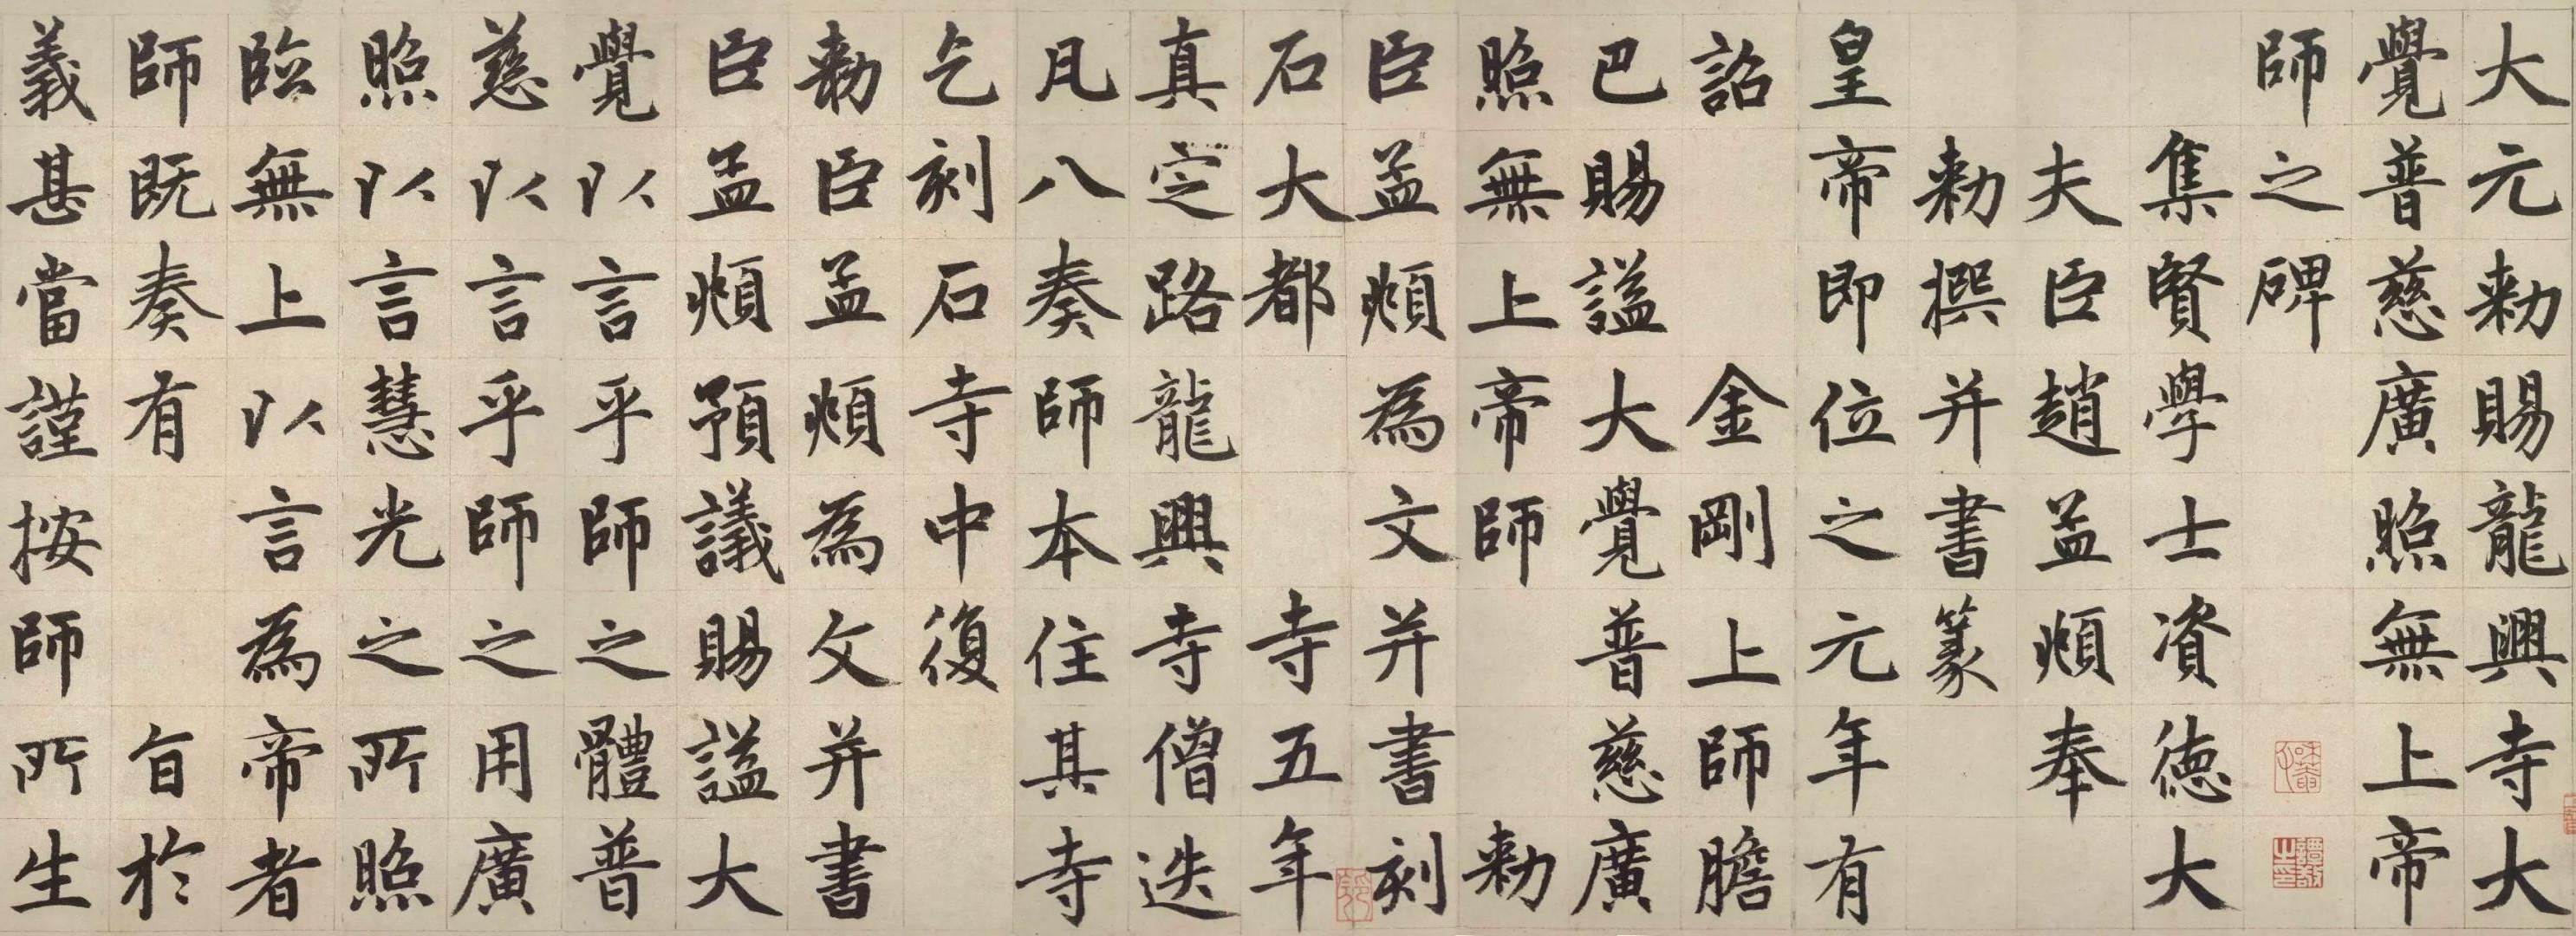 大元勑賜龍興寺大
覺普慈廣照無上帝
師之碑
集賢學士資德大
夫臣趙孟頫奉
勑撰并書篆
皇帝即位之元年有
詔金剛上師膽
巴賜謚大覺普慈廣
照無上帝師勑
臣孟頫為文并書刻
石大都寺五年
真定路龍興寺僧迭
凡八奏師本住其寺
乞刻石寺中復
勑臣孟頫為文并書
臣孟頫預議賜謚大
覺以言乎師之體普
慈以言乎師之用廣
照以言慧光之所照
臨無上以言為帝者
師既奏有旨於
義甚當謹按師所生